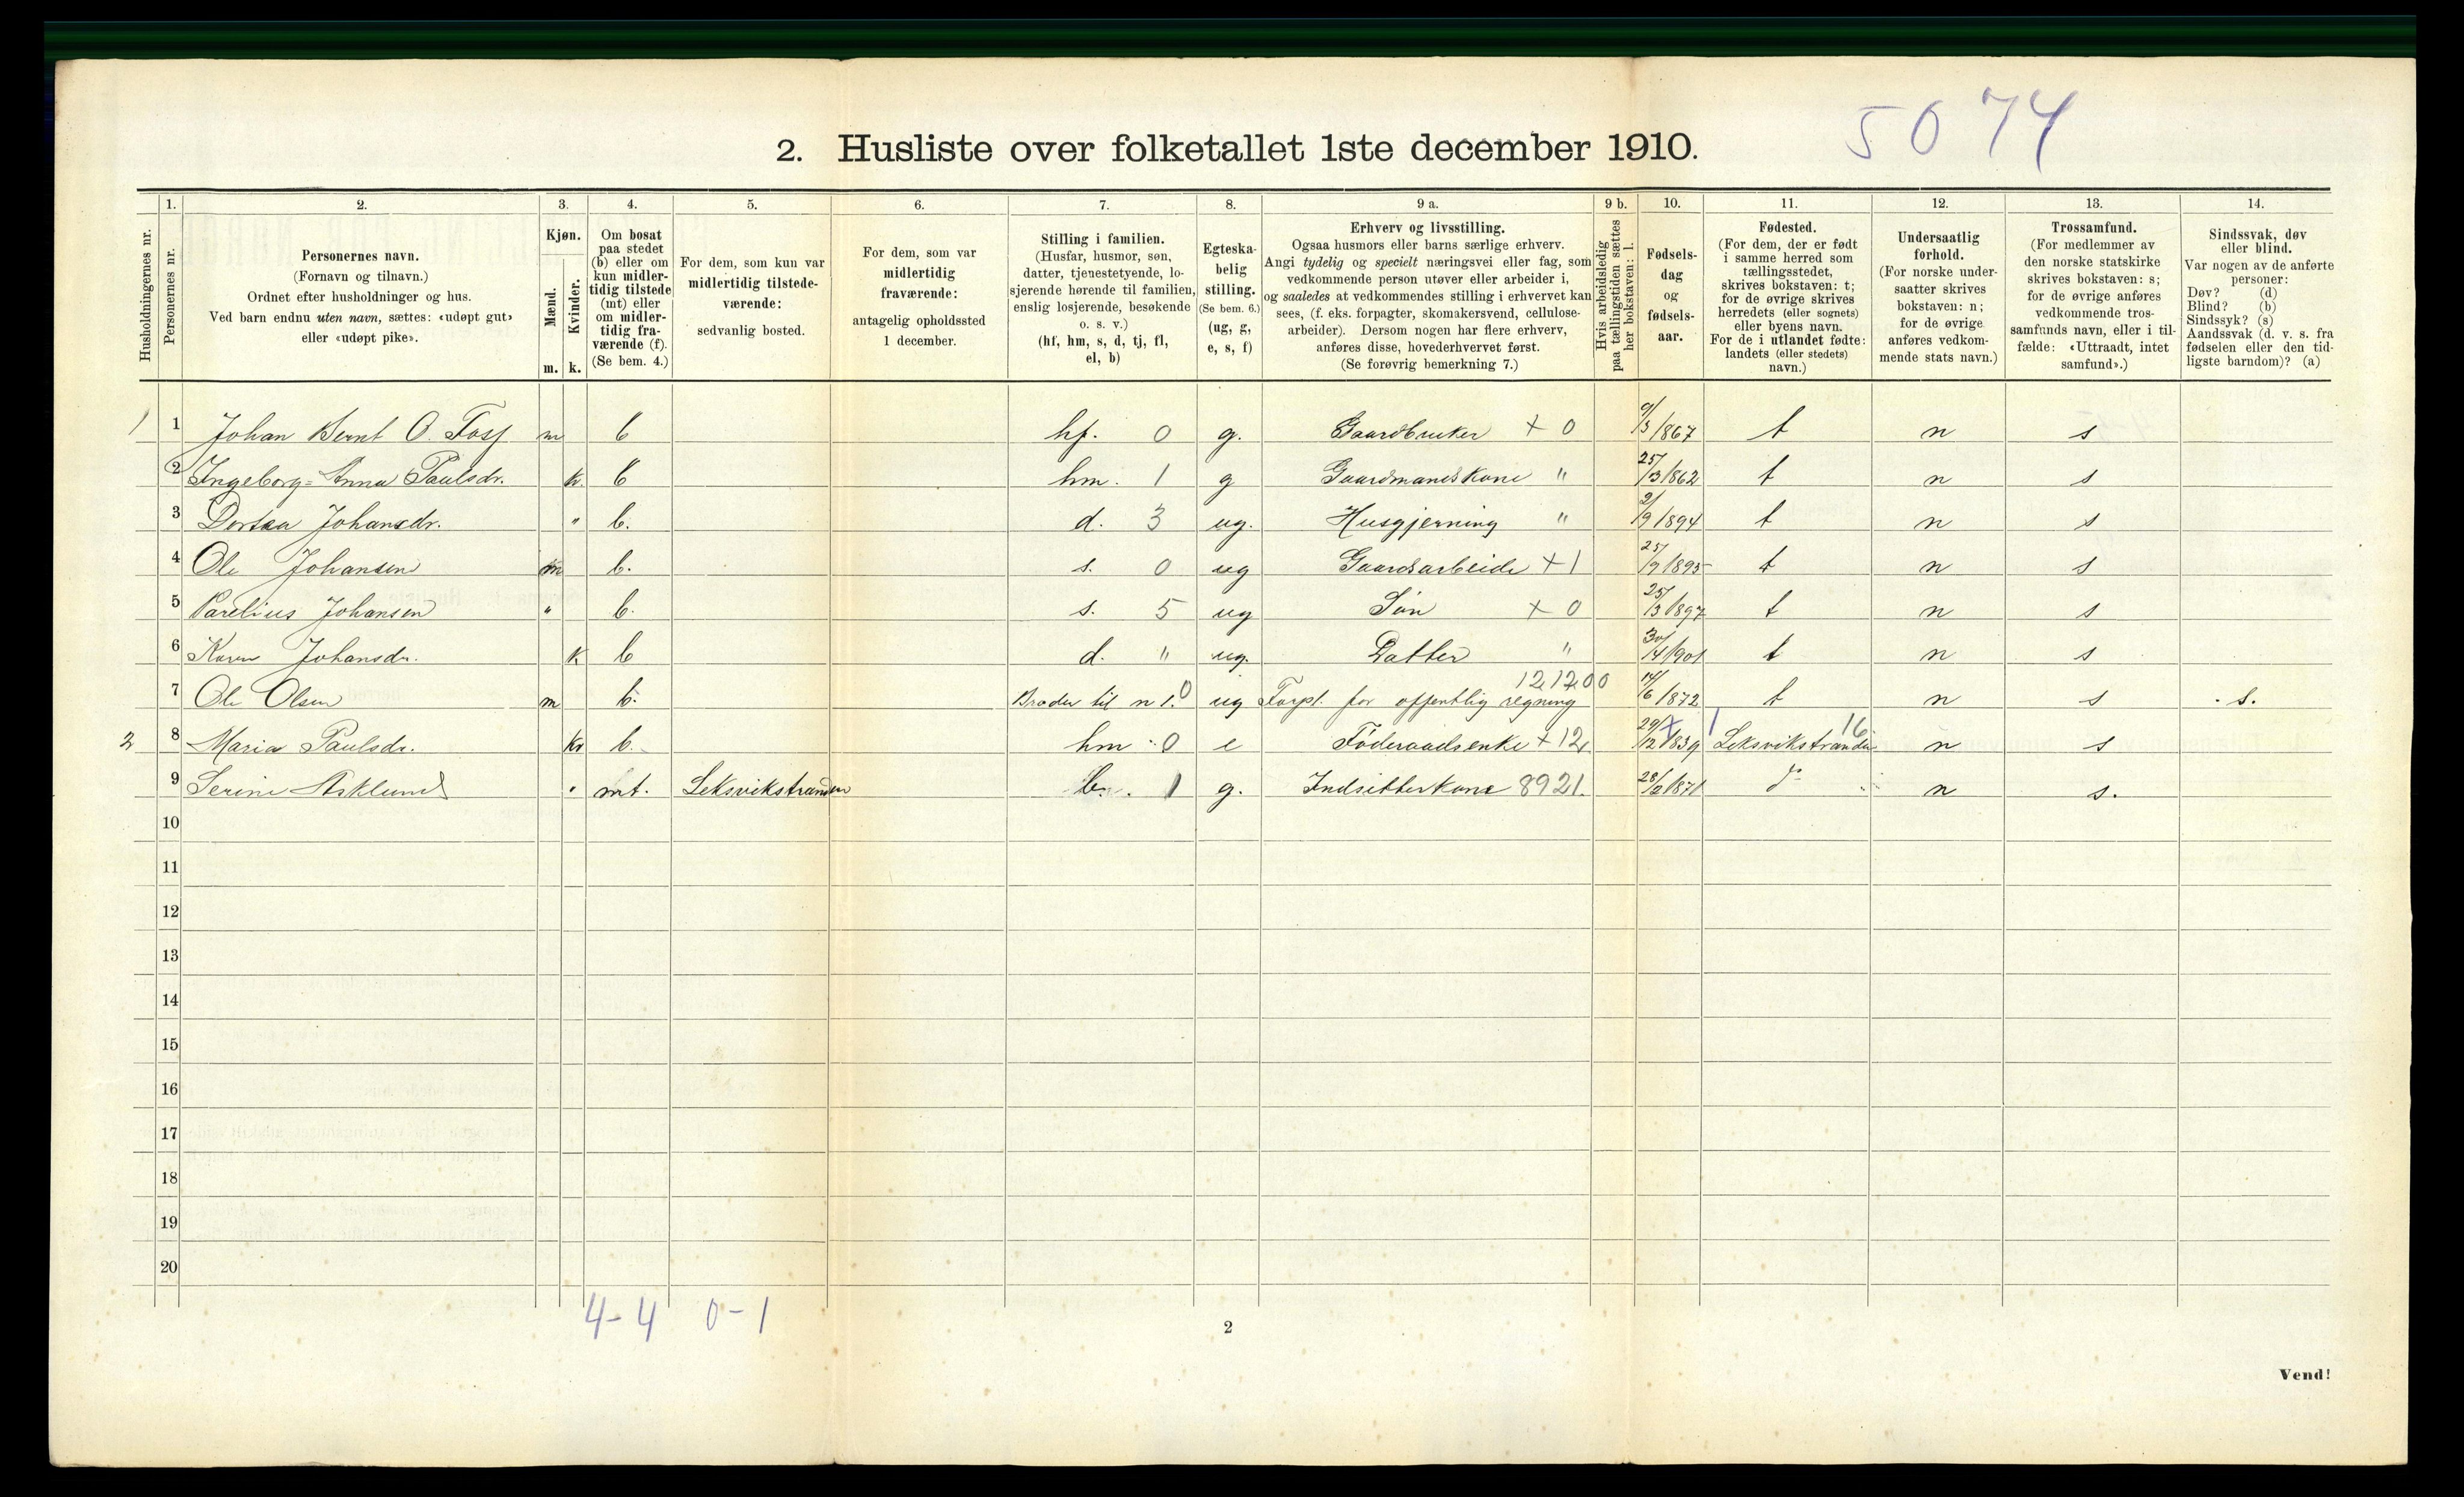 5074
2. Husliste over folketallet 1ste december 1910.
1. 2. 3. 4. 5. 6. 7. 8. 9 a. 9 b. 10. 11. 12. 13. 14.
Husholdningernes nr.
Personernes nr.
Personernes navn.
(Fornavn og tilnavn.)
Ordnet efter husholdninger og hus.
Ved barn endnu uten navn, sættes: «udøpt gut»
eller «udøpt pike».
Kjøn.
Mænd.
Kvinder.
m. k.
Om bosat
paa stedet
(b) eller om
kun midler-
tidig tilstede
(mt) eller
om midler-
tidig fra-
værende (f).
(Se bem. 4.)
For dem, som kun var
midlertidig tilstede-
værende:
sedvanlig bosted.
For dem, som var
midlertidig
fraværende:
antagelig opholdssted
1 december.
Stilling i familien.
(Husfar, husmor, søn,
datter, tjenestetyende, lo-
sjerende hørende til familien,
enslig losjerende, besøkende
o. s. v.)
(hf, hm, s, d, tj, fl,
el, b)
Egteska-
belig
stilling.
(Se bem. 6.)
(ug, g,
e, s, f)
Erhverv og livsstilling.
Ogsaa husmors eller barns særlige erhverv.
Angi tydelig og specielt næringsvei eller fag, som
vedkommende person utøver eller arbeider i,
og saaledes at vedkommendes stilling i erhvervet kan
sees, (f. eks. forpagter, skomakersvend, cellulose-
arbeider). Dersom nogen har flere erhverv,
anføres disse, hovederhvervet først.
(Se forøvrig bemerkning 7.)
Hvis arbeidsledig
paa tællingstiden sættes
her bokstaven: l.
Fødsels-
dag
og
fødsels-
aar.
Fødested.
(For dem, der er født
i samme herred som
tællingsstedet,
skrives bokstaven: t;
for de øvrige skrives
herredets (eller sognets)
eller byens navn.
For de i utlandet fødte:
landets (eller stedets)
navn.)
Undersaatlig
forhold.
(For norske under-
saatter skrives
bokstaven: n;
for de øvrige
anføres vedkom-
mende stats navn.)
Trossamfund.
(For medlemmer av
den norske statskirke
skrives bokstaven: s;
for de øvrige anføres
vedkommende tros-
samfunds navn, eller i til-
fælde: «Uttraadt, intet
samfund».)
Sindssvak, døv
eller blind.
Var nogen av de anførte
personer:
Døv? (d)
Blind? (b)
Sindssyk? (s)
Aandssvak (d. v. s. fra
fødselen eller den tid-
ligste barndom)? (a)
1 1 Johan Bernt O. m b hf. 0 g. Gaardbruker + 0 9/3/867 t n s
2 Ingeborg=Anna Paulsdr. k. b hm. 1 g Gaardmandskone " 25/3/862 t n s
3 Dortea Johansdr. " b. d. 3 ug. Husgjerning " 2/9/894 t n s
4 Ole Johansen m b. s. 0 ug Gaardsarbeide + 1 25/9/895 t n s
5 Parelius Johansen " b. s. 5 ug Søn + 0 25/3/897 t n s
6 Karen Johansdr. k b d. " ug. Datter " 30/4/901 t n s
7 Ole Olsen m b. Broder til n 1. 0 ug Forpl. for offentlig regning 121200 14/6/872 t n s s.
2 8 Maria Paulsdr. k b. hm 0 e Føderaadsenke + 12 29/12/839 1 Leksvikstranden 16 n s
9 Serine Asklund " mt. Leksvikstranden b. 1 g. Indsitterkone 8921. 28/ /871 n s.
10
11
12
13
14
15
16
17
18
19
20
4-4 0-1
2
Vend!